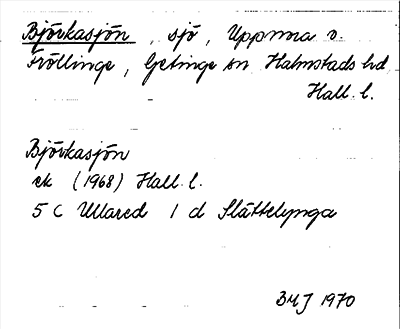 Björkasjön, sjö, Uppmma v.
Fröllinge, Getinge sn Halmstads hd
Hall. l.
Björkasjön
ek (1968) Hall. l.
5 C Ullared 1 d Slättelynga
BMJ 1970